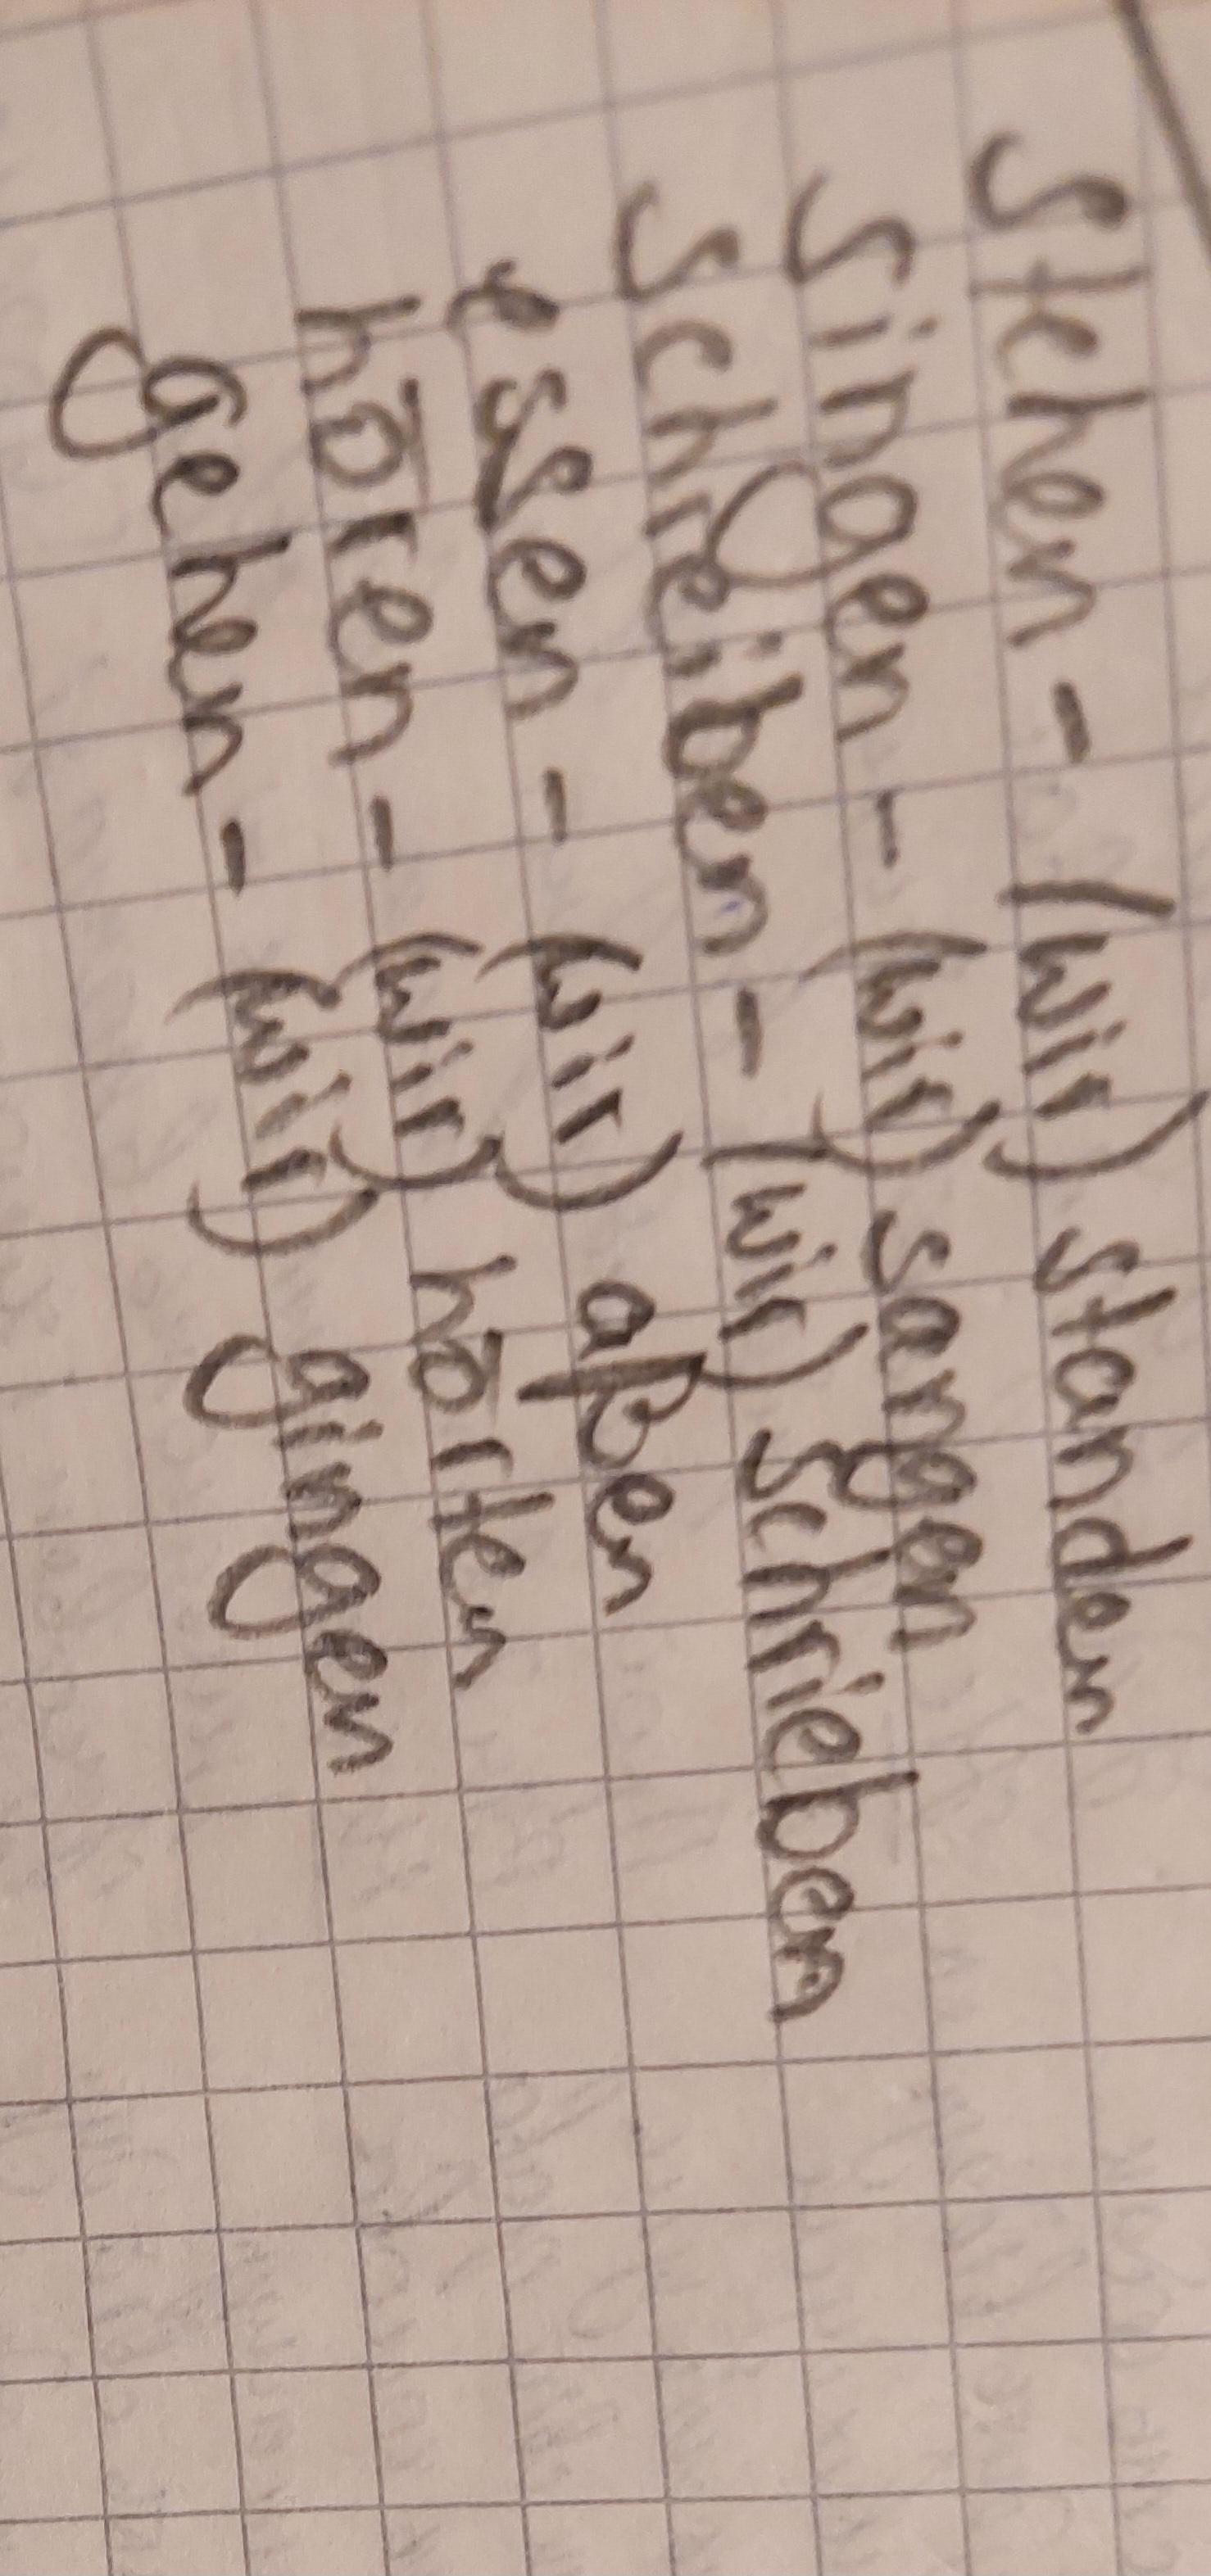 stehen - (wir) standen
singen - (wir) sangen
schreiben - (wir) schrieben
essen - (wir) aßen
hören - (wir) hörten
gehen - (wir) gingen